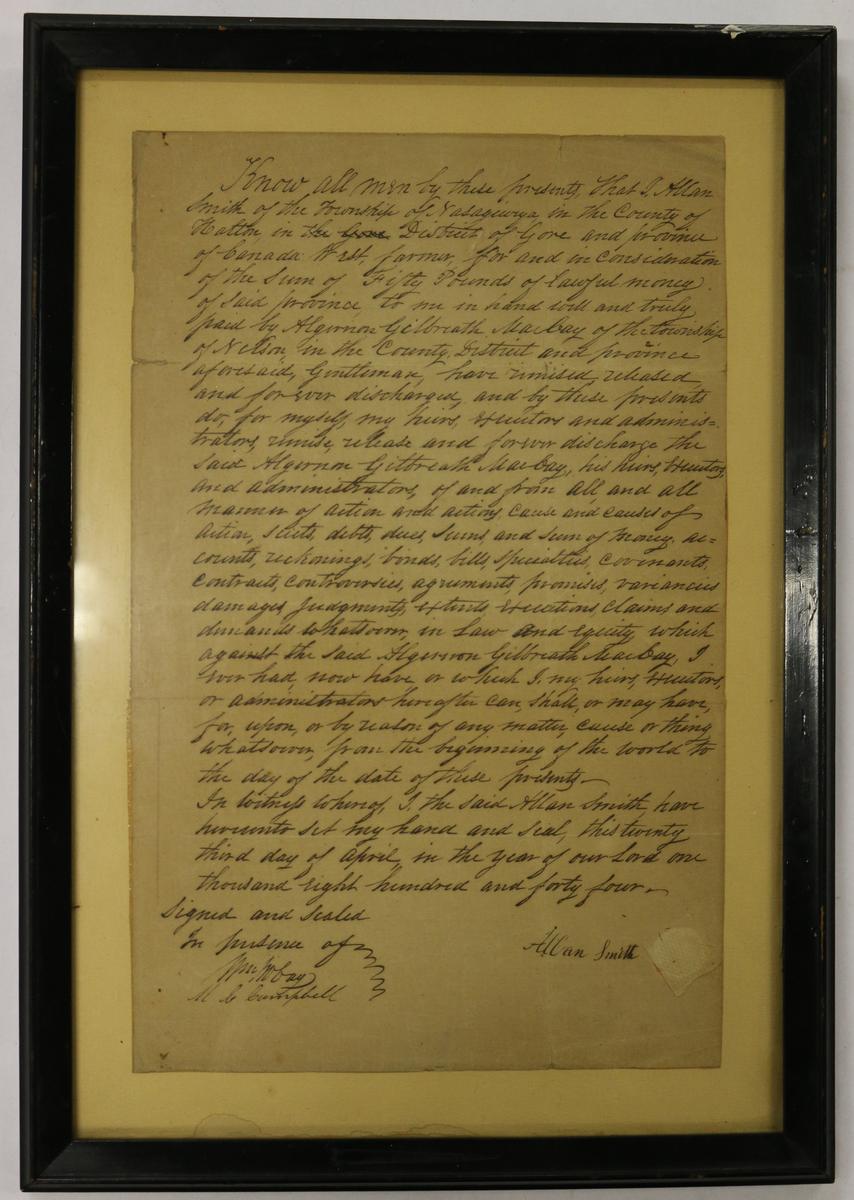 Know all men by these presents, that I, Allan
Smith of the Township of Nasagiweya in the County of
Halton, in the Gore District of Gore and province
of Canada West, farmer, for and in consideration
of the sum of Fifty Pounds of lawful money
of said province, to me in hand well and truly
paid by Algernon Gilbreath MacCay of the township
of Nelson, in the County, District and province
aforesaid, Gentleman, have remised, released,
and for ever discharged, and by these presents
do, for myself, my heirs, executors and adminis=
trators, remise, release and forever discharge the
said Algernon Gilbreath MacCay, his heirs, Executors,
and administrators, of and from all, and all
manner of action and actions, cause and causes of
action, suits, debts, dues, sums, and sum of money, ac=
counts, reckonings, bonds, bills, specialties, covenants,
contracts, controversies, agreements, promises, variances
damages, Judgments, extents, executions, claims and
demands whatsoever, in Law and Equity, which
against the said Algernon Gilbreath MacCay, I
ever had, now have or which I, my heirs, Executors,
or administrators hereafter can, shall, or may have,
for, upon, or by reason of any matter, cause or thing
whatsoever, from the beginning of the world to
the day of the date of these presents—
In Witness whereof, I, the said Allan Smith have
hereunto set my hand and seal, this twenty
third day of April, in the year of our Lord one
thousand eight hundred and forty four—
Signed and sealed
In presence of
Wm McCay
M C Campbell
Allan Smith